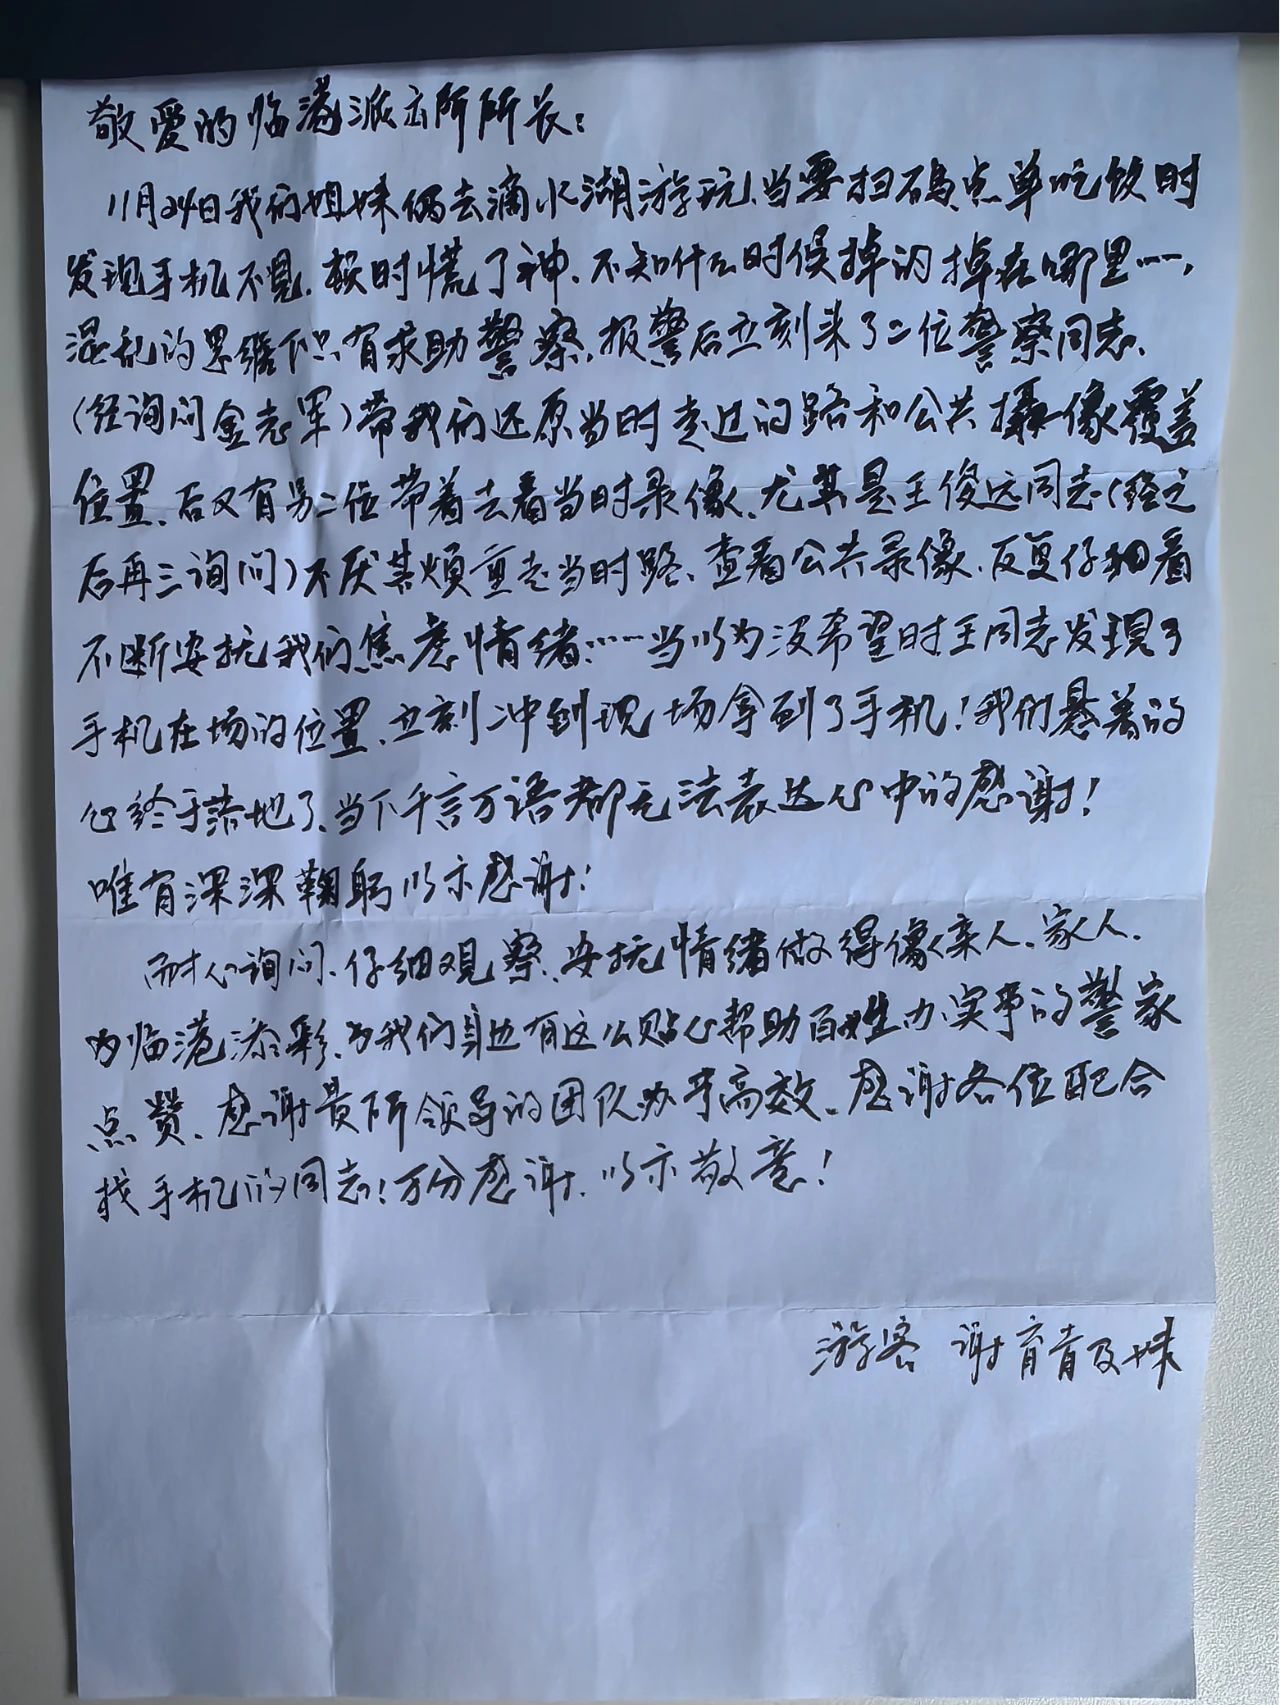 敬爱的临港派出所所长：
11月24日我们姐妹俩去滴水湖游玩，当要扫码点单吃饭时
发现手机不见，顿时慌了神，不知什么时候掉的掉在哪里……，
混乱的思维下只有求助警察，报警后立刻来了二位警察同志，
（经询问金志军）带我们还原当时走过的路和公共摄像覆盖
位置，后又有另二位带着去看当时录像，尤其是王俊远同志（经之
后再三询问）不厌其烦重走当时路、查看公共录像，反复仔细看
不断安抚我们焦虑情绪……当以为没希望时王同志发现了
手机在场的位置，立刻冲到现场拿到了手机！我们悬着的
心终于落地了，当下千言万语都无法表达心中的感谢！
唯有深深鞠躬以示感谢！
耐心询问、仔细观察、安抚情绪做得像亲人、家人，
为临港添彩，为我们身边有这么贴心帮助百姓办实事的警察
点赞，感谢贵所领导的团队办事高效，感谢各位配合
找手机的同志！万分感谢，以示敬意！
游客 谢育青及妹